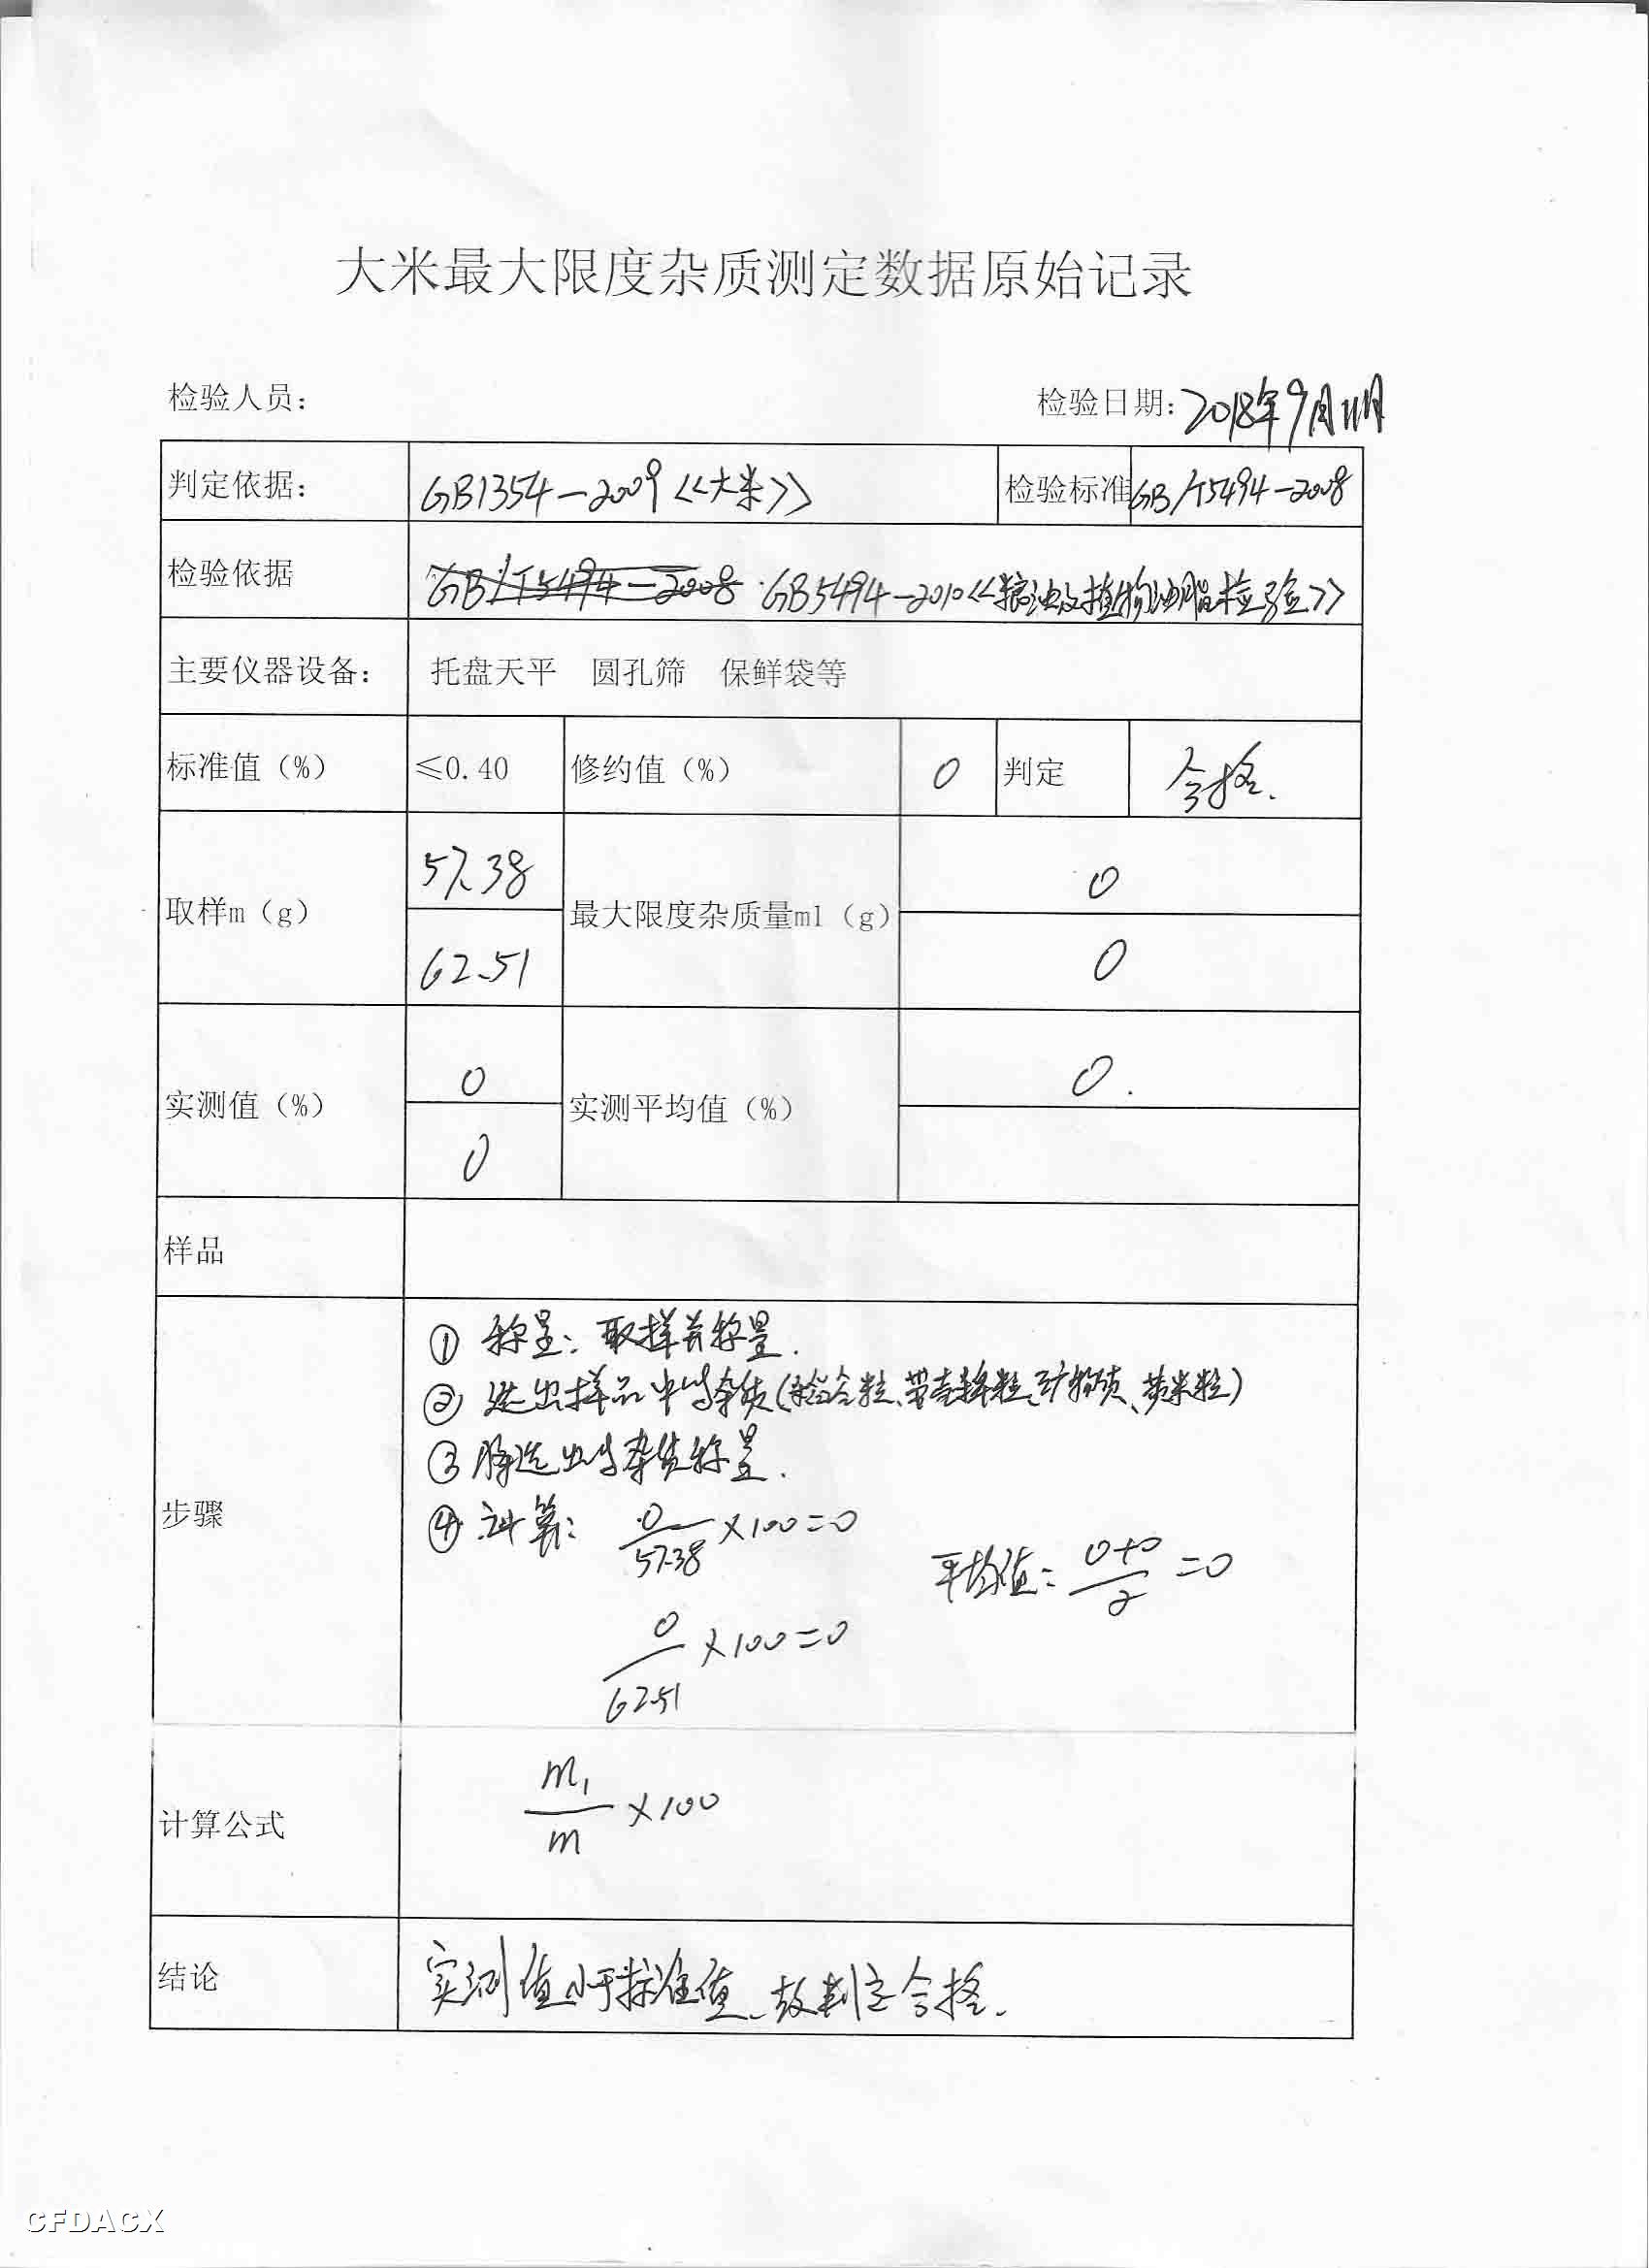 大米最大限度杂质测定数据原始记录
检验人员： 检验日期：2018年9月11日
判定依据： GB1354-2009<<大米>> 检验标准 GB/T5494-2008
检验依据 GB/T5494-2008 GB5494-2010<<粮油及植物油脂检验>>
主要仪器设备： 托盘天平 圆孔筛 保鲜袋等
标准值（%） ≤0.40 修约值（%） 0 判定 合格.
取样m（g） 57.38 最大限度杂质量m1（g） 0
62.51 0
实测值（%） 0 实测平均值（%） 0.
0
样品
步骤
① 称量：取样并称量.
② 选出样品中的杂质(粒、带壳稗粒、矿物质、黄米粒)
③ 筛选出的杂质称量.
④ 计算： 0/57.38 ×100=0
平均值= 0+0/2 =0
0/62.51 ×100=0
计算公式 m1/m ×100
结论 实测值小于标准值、故判定合格.
CFDACX